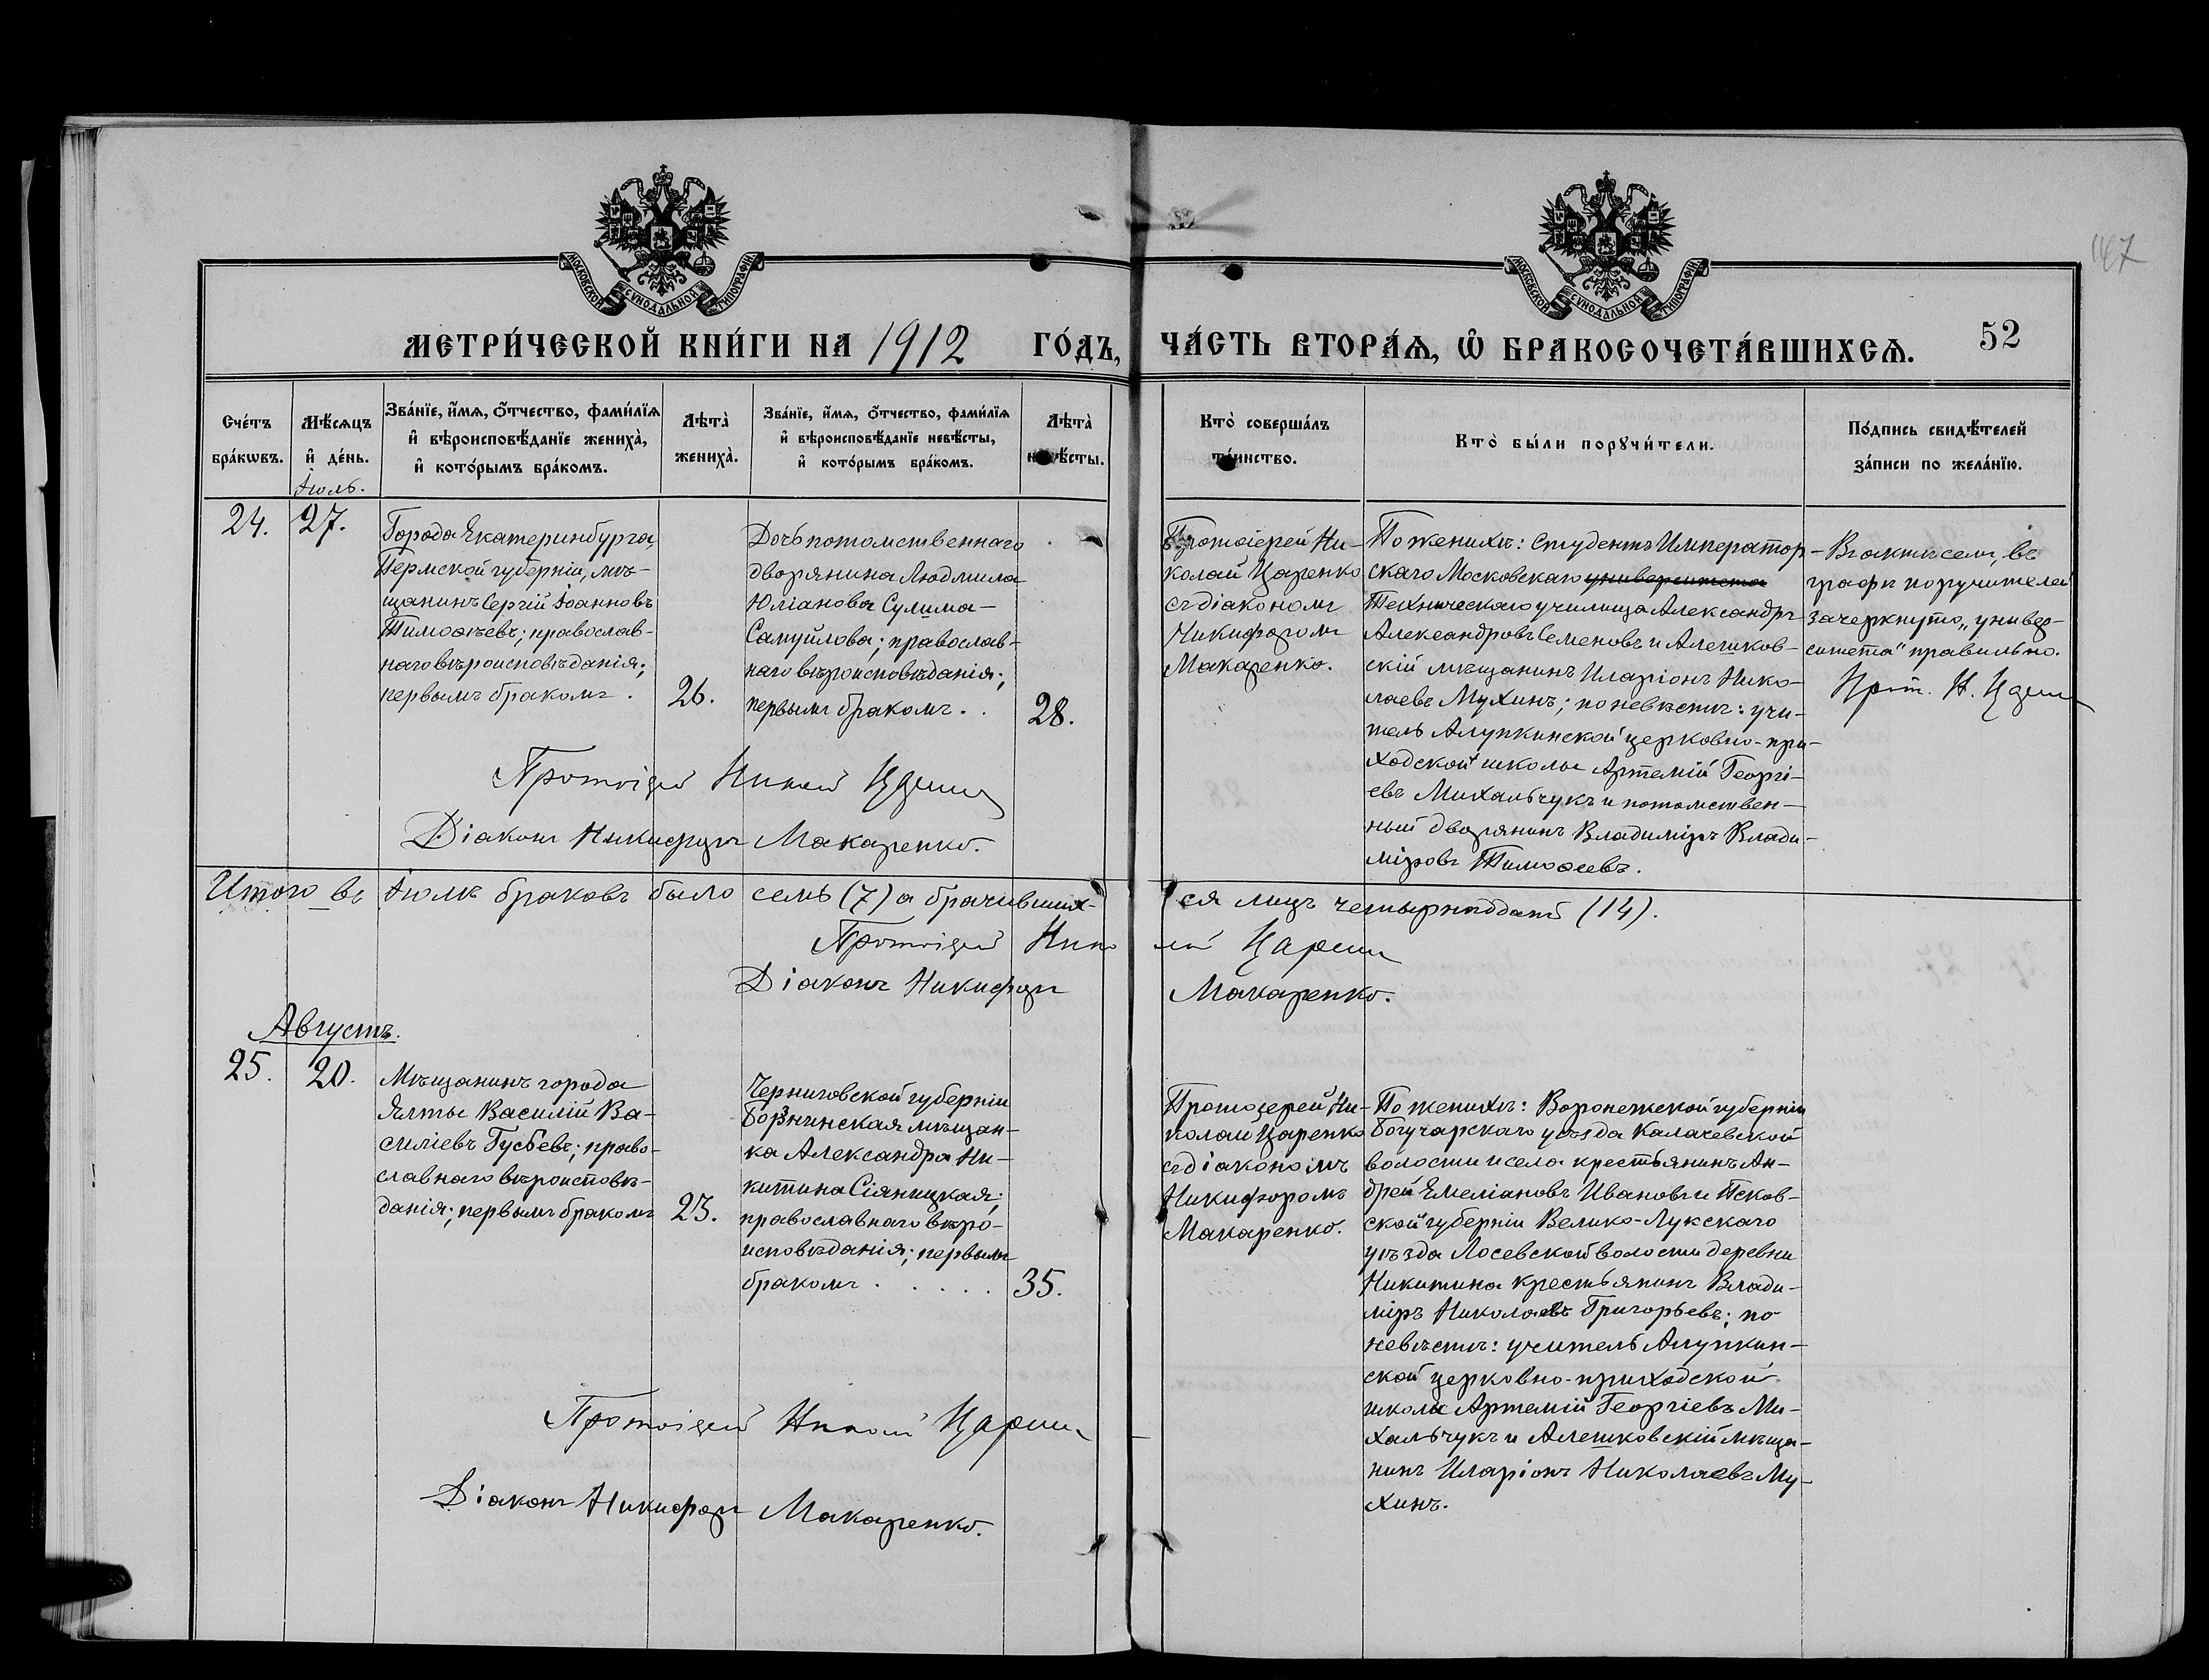 МОСКОВСКОЙ СѴНОДАЛЬНОЙ ТИПОГРАФІИ
МОСКОВСКОЙ СѴНОДАЛЬНОЙ ТИПОГРАФІИ
147
МЕТРИ́ЧЕСКОЙ КНИ́ГИ НА 1912 ГО́ДЪ,
ЧА́СТЬ ВТОРА́Ѧ, Ѽ БРАКОСОЧЕТА́ВШИХСѦ.
52
Сче́тъ
бра́кѡвъ.
Мѣ́сѧцъ
и҆ де́нь.
Зва́нїе, и҆́мѧ, ѻ҆́тчество, фами́лїѧ
и҆ вѣроисповѣ́данїе жениха̀,
и҆ кото́рымъ бра́комъ.
Лѣта̀
жениха̀.
Зва́нїе, и҆́мѧ, ѻ҆́тчество, фами́лїѧ
и҆ вѣроисповѣ́данїе невѣ́сты,
и҆ кото́рымъ бра́комъ.
Лѣта̀
невѣ́сты.
Кто̀ соверша́лъ
та́инство.
Кто̀ бы́ли порꙋчи́тели.
По́дпись свидѣ́телей
за́писи по жела́нїю.
Іюль.
24.
27.
Города Екатеринбурга,
Пермской губерніи, мѣ-
щанинъ Сергій Іоанновъ
Тимоѳеевъ; православ-
наго вѣроисповѣданія;
первымъ бракомъ.
26.
Дочь потомственнаго
дворянина Людмила
Юліанова Сулима-
Самуйлова; православ-
наго вѣроисповѣданія;
первымъ бракомъ. .
28.
Протоіерей Ни-
колай Царенко
съ діакономъ
Никифоромъ
Макаренко.
По женихѣ: студентъ Император-
скаго Московскаго университета
Техническаго училища Александръ
Александровъ Семеновъ и Алешков-
скій мѣщанинъ Иларіонъ Нико-
лаевъ Мухинъ; по невѣстѣ: учи-
тель Алупкинской церковно-при-
ходской школы Артемій Георгі-
евъ Михальчукъ и потомствен-
ный дворянинъ Владиміръ Влади-
міровъ Тимоѳеевъ.
- Въ актѣ семъ, въ
графѣ поручителей
зачеркнуто „универ-
ситета" правильно.
Прот. Н. Царенко
Протоіерей Николай Царенко
Діаконъ Никифоръ Макаренко.
Итого въ Іюлѣ браковъ было семь (7) а брачивших-
ся лицъ четырнадцать (14).
Протоіерей Николай Царенко
Діаконъ Никифоръ Макаренко.
Августъ.
25.
20.
Мѣщанинъ города
Ялты Василій Ва-
силіевъ Гусевъ; право-
славнаго вѣроисповѣ-
данія; первымъ бракомъ
23.
Черниговской губерніи
Борзнинская мѣщан-
ка Александра Ни-
китина Сіяницкая;
православнаго вѣро-
исповѣданія; первымъ
бракомъ . . . . .
35.
Протоіерей Ни-
колай Царенко
съ діакономъ
Никифоромъ
Макаренко.
По женихѣ: Воронежской губерніи
Богучарскаго уѣзда Калачевской
волости и села крестьянинъ Ан-
дрей Емеліановъ Ивановъ и Псков-
ской губерніи Велико-Лукскаго
уѣзда Лосевской волости деревни
Никитина крестьянинъ Влади-
міръ Николаевъ Григорьевъ; по
невѣстѣ: учитель Алупкин-
ской церковно-приходской
школы Артемій Георгіевъ Ми-
хальчукъ и Алешковскій мѣща-
нинъ Иларіонъ Николаевъ Му-
хинъ.
Протоіерей Николай Царенко
Діаконъ Никифоръ Макаренко.